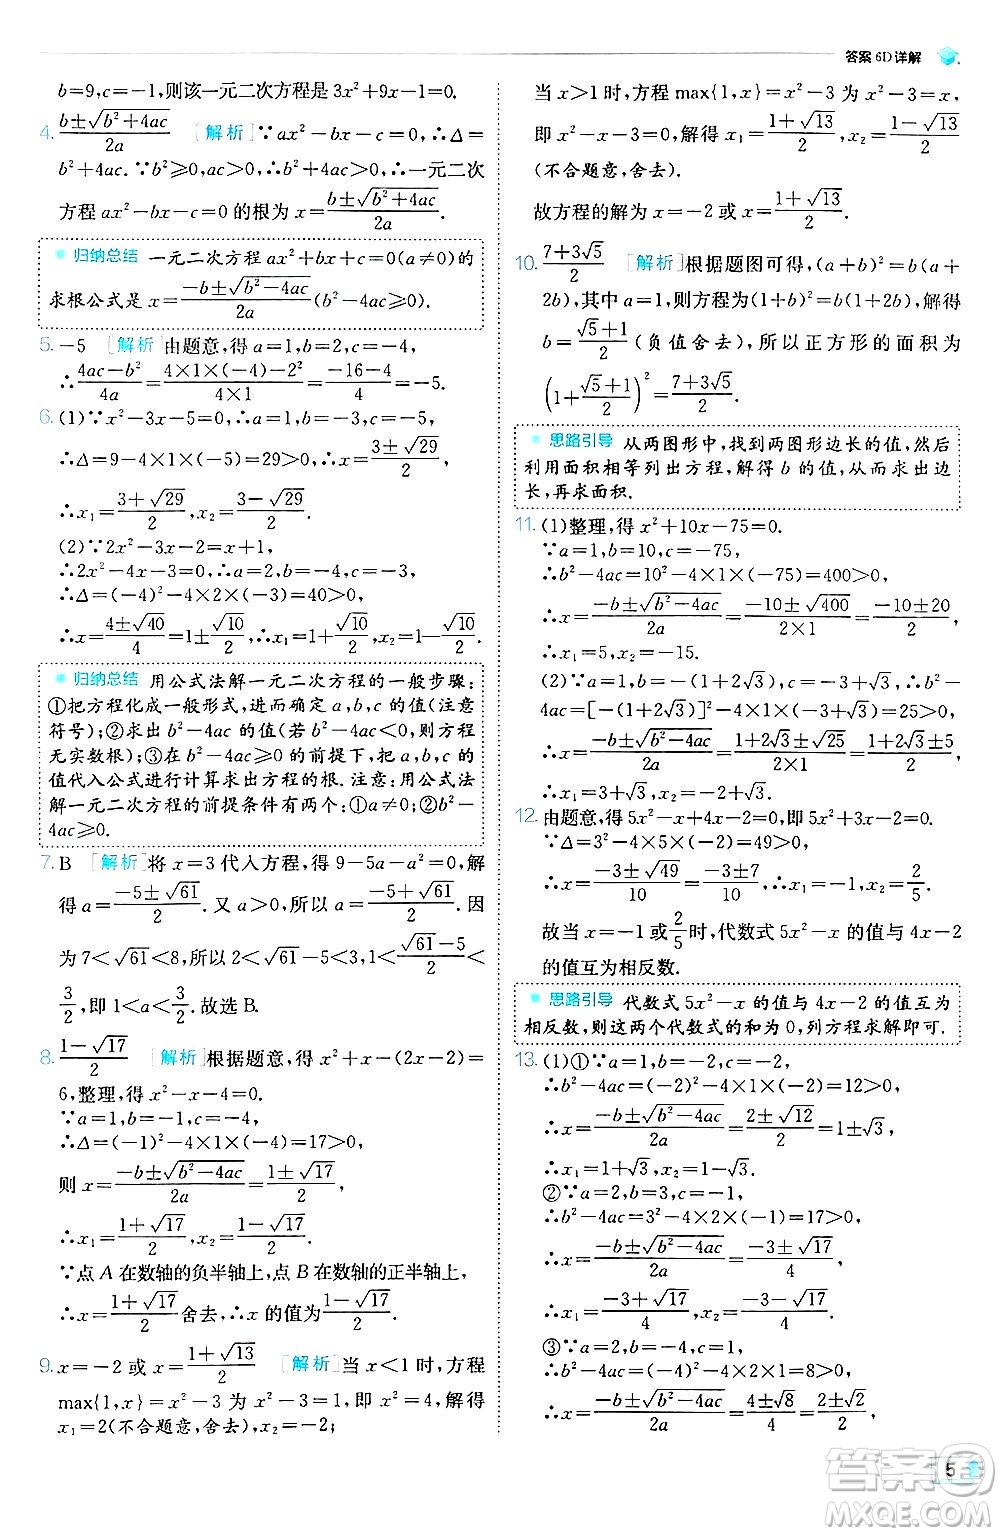 答案 6D 详解
b=9,c=-1,则该一元二次方程是 3x²+9x-1=0.
4. (b±√(b²+4ac))/(2a) [解析]∵ax²-bx-c=0,∴Δ=
b²+4ac.∵b²≥0,∴b²+4ac≥0,∴一元二次
方程 ax²-bx-c=0 的根为 x=(b±√(b²+4ac))/(2a).
归纳总结 一元二次方程 ax²+bx+c=0(a≠0)的
求根公式是 x=(-b±√(b²-4ac))/(2a)(b²-4ac≥0).
5. -5 [解析]由题意,得 a=1,b=2,c=-4,
∴(4ac-b²)/(4a)=(4×1×(-4)-2²)/(4×1)=(-16-4)/4=-5.
6. (1)∵x²-3x-5=0,∴a=1,b=-3,c=-5,
∴Δ=9-4×1×(-5)=29>0,∴x=(3±√29)/2,
∴x₁=(3+√29)/2,x₂=(3-√29)/2.
(2)∵2x²-3x=x+1,
∴2x²-4x-3=0,∴a=2,b=-4,c=-3,
∴Δ=(-4)²-4×2×(-3)=40>0,
∴x=(4±√40)/4=1±√10/2,∴x₁=1+√10/2,x₂=1-√10/2.
归纳总结 用公式法解一元二次方程的一般步骤:
①把方程化成一般形式,进而确定 a,b,c 的值(注意
符号);②求出 b²-4ac 的值(若 b²-4ac<0,则方程
无实数根);③在 b²-4ac≥0 的前提下,把 a,b,c 的
值代入公式进行计算求出方程的根. 注意:用公式法
解一元二次方程的前提条件有两个:①a≠0;②b²-
4ac≥0.
7. B [解析]将 x=3 代入方程,得 9-5a-a²=0,解
得 a=(-5±√61)/2.又 a>0,所以 a=(√61-5)/2.因
为 7<√61<8,所以 2<√61-5<3,所以 1<(√61-5)/2<
3/2,即 1<a<3/2.故选 B.
8. (1-√17)/2 [解析]根据题意,得 x²+x-(2x-2)=
6,整理,得 x²-x-4=0.
∵a=1,b=-1,c=-4,
∴Δ=(-1)²-4×1×(-4)=17>0,
则 x=(-b±√(b²-4ac))/(2a)=(1±√17)/2,
∴x₁=(1+√17)/2,x₂=(1-√17)/2.
∵点 A 在数轴的负半轴上,点 B 在数轴的正半轴上,
∴x=(1+√17)/2舍去,∴x 的值为(1-√17)/2.
9. x=-2 或 x=(1+√13)/2 [解析]当 x<1 时,方程
max{1,x}=x²-3 为 x²-3=1,即 x²=4,解得
x₁=2(不合题意,舍去),x₂=-2;
当 x>1 时,方程 max{1,x}=x²-3 为 x²-3=x,
即 x²-x-3=0,解得 x₁=(1+√13)/2,x₂=(1-√13)/2
(不合题意,舍去).
故方程的解为 x=-2 或 x=(1+√13)/2.
10. (7+3√5)/2 [解析]根据题图可得,(a+b)²=b(b+a+
b),其中 a=1,则方程为(1+b)²=b(1+2b),解得
b=(√5+1)/2(负值舍去),所以正方形的面积为
(1+(√5+1)/2)²=(7+3√5)/2.
思路引导 从两图形中,找到两图形边长的值,然后
利用面积相等列出方程,解得 b 的值,从而求出边
长,再求面积.
11. (1)整理,得 x²+10x-75=0.
∵a=1,b=10,c=-75,
∴b²-4ac=10²-4×1×(-75)=400>0,
∴x=(-b±√(b²-4ac))/(2a)=(-10±√400)/(2×1)=(-10±20)/2,
∴x₁=5,x₂=-15.
(2)∵a=1,b=-(1+2√3),c=√3-3,∴b²-
4ac=[-(1+2√3)]²-4×1×(√3-3)=25>0,
∴x=(-b±√(b²-4ac))/(2a)=(1+2√3±√25)/(2×1)=(1+2√3±5)/2,
∴x₁=3+√3,x₂=-2+√3.
12. 由题意,得 5x²-x+4x-2=0,即 5x²+3x-2=0.
∵Δ=3²-4×5×(-2)=49>0,
∴x=(-3±√49)/10=(-3±7)/10,∴x₁=-1,x₂=2/5.
故当 x=-1 或2/5时,代数式 5x²-x 的值与 4x-2
的值互为相反数.
思路引导 代数式 5x²-x 的值与 4x-2 的值互为
相反数,则这两个代数式的和为 0,列方程求解即可.
13. (1)①∵a=1,b=-2,c=-2,
∴b²-4ac=(-2)²-4×1×(-2)=12>0,
∴x=(-b±√(b²-4ac))/(2a)=(2±√12)/2=1±√3,
∴x₁=1+√3,x₂=1-√3.
②∵a=2,b=3,c=-1,
∴b²-4ac=3²-4×2×(-1)=17>0,
∴x=(-b±√(b²-4ac))/(2a)=(-3±√17)/4,
∴x₁=(-3+√17)/4,x₂=(-3-√17)/4.
③∵a=2,b=-4,c=1,
∴b²-4ac=(-4)²-4×2×1=8>0,
∴x=(-b±√(b²-4ac))/(2a)=(4±√8)/(2×2)=(2±√2)/2,
5
答案圈
MXQE.COM